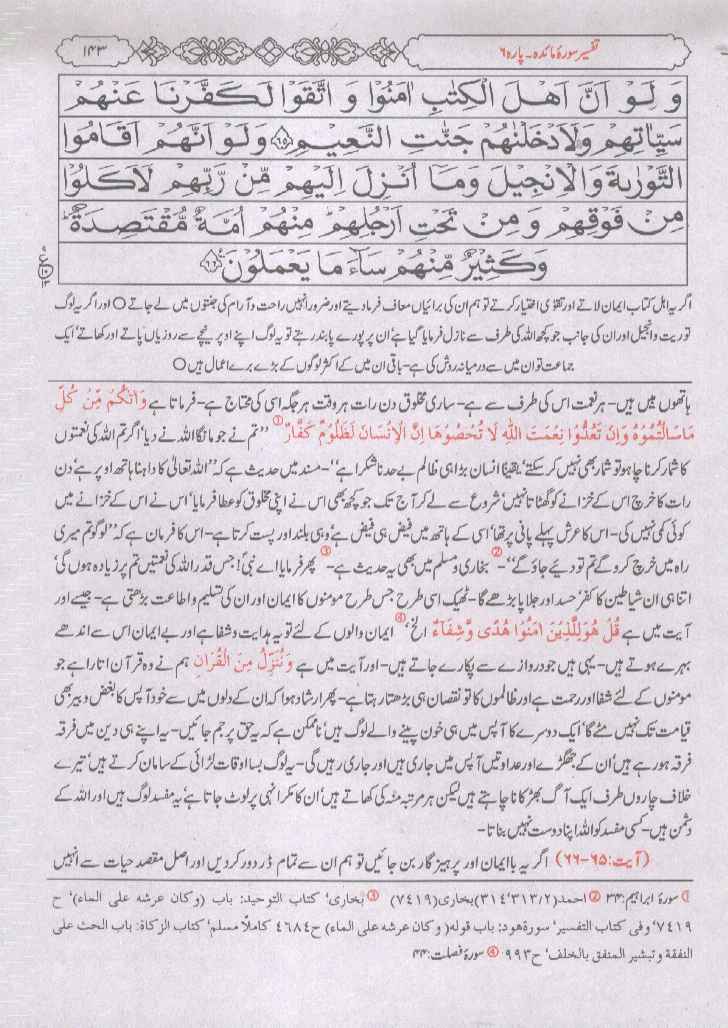 تفسیر سورۂ مائدہ۔ پارہ ۶
۱۴۳
وَ لَوْ اَنَّ اَهْلَ الْكِتٰبِ اٰمَنُوْا وَ اتَّقَوْا لَكَفَّرْنَا عَنْهُمْ
سَيِّاٰتِهِمْ وَلَاَدْخَلْنٰهُمْ جَنّٰتِ النَّعِيْمِ ۶۵ وَلَوْ اَنَّهُمْ اَقَامُوا
التَّوْرٰىةَ وَالْاِنْجِيْلَ وَمَاۤ اُنْزِلَ اِلَيْهِمْ مِّنْ رَّبِّهِمْ لَاَكَلُوْا
مِنْ فَوْقِهِمْ وَ مِنْ تَحْتِ اَرْجُلِهِمْ ؕ مِنْهُمْ اُمَّةٌ مُّقْتَصِدَةٌ ؕ
وَكَثِيْرٌ مِّنْهُمْ سَآءَ مَا يَعْمَلُوْنَ ۶۶
اگر یہ اہل کتاب ایمان لاتے اور تقویٰ اختیار کرتے تو ہم ان کی برائیاں معاف فرما دیتے اور ضرور انہیں راحت و آرام کی جنتوں میں لے جاتے ○ اور اگر یہ لوگ
توریت و انجیل اور ان کی جانب جو کچھ اللہ کی طرف سے نازل فرمایا گیا ہے' ان پر پورے پابند رہتے تو یہ لوگ اپنے اوپر نیچے سے روزیاں پاتے اور کھاتے' ایک
جماعت تو ان میں سے درمیانہ روش کی ہے۔ باقی ان میں کے اکثر لوگوں کے بڑے برے اعمال ہیں ○
ہاتھوں میں ہیں۔ ہر نعمت اس کی طرف سے ہے۔ ساری مخلوق دن رات ہر وقت ہر جگہ اسی کی محتاج ہے۔ فرماتا ہے وَاٰتٰكُمْ مِّنْ كُلِّ
مَا سَاَلْتُمُوْهُ وَاِنْ تَعُدُّوْا نِعْمَتَ اللّٰهِ لَا تُحْصُوْهَا اِنَّ الْاِنْسَانَ لَظَلُوْمٌ كَفَّارٌ ① ''تم نے جو مانگا اللہ نے دیا' اگر تم اللہ کی نعمتوں
کا شمار کرنا چاہو تو شمار بھی نہیں کر سکتے' یقینا انسان بڑا ہی ظالم بے حد ناشکرا ہے''۔ مسند میں حدیث ہے کہ ''اللہ تعالیٰ کا داہنا ہاتھ اوپر ہے' دن
رات کا خرچ اس کے خزانے کو گھٹاتا نہیں' شروع سے لے کر آج تک جو کچھ بھی اس نے اپنی مخلوق کو عطا فرمایا' اس نے اس کے خزانے میں
کوئی کمی نہیں کی۔ اس کا عرش پہلے پانی پر تھا' اسی کے ہاتھ میں فیض ہی فیض ہے' وہی بلند اور پست کرتا ہے۔ اس کا فرمان ہے کہ ''لوگو تم میری
راہ میں خرچ کرو گے تم تو دیئے جاؤ گے''۔② بخاری و مسلم میں بھی یہ حدیث ہے۔③ پھر فرمایا اے نبی! جس قدر اللہ کی نعمتیں تم پر زیادہ ہوں گی'
اتنا ہی ان شیاطین کا کفر' حسد اور جلاپا بڑھے گا۔ ٹھیک اسی طرح جس طرح مومنوں کا ایمان اور ان کی تسلیم و اطاعت بڑھتی ہے۔ جیسے اور
آیت میں ہے قُلْ هُوَ لِلَّذِيْنَ اٰمَنُوْا هُدًى وَّشِفَاءٌ الخ'④ ایمان والوں کے لئے تو یہ ہدایت و شفا ہے اور بے ایمان اس سے اندھے
بہرے ہوتے ہیں۔ یہی ہیں جو دروازے سے پکارے جاتے ہیں۔ اور آیت میں ہے وَنُنَزِّلُ مِنَ الْقُرْاٰنِ ہم نے وہ قرآن اتارا ہے جو
مومنوں کے لئے شفا اور رحمت ہے اور ظالموں کا تو نقصان ہی بڑھتا رہتا ہے۔ پھر ارشاد ہوا کہ ان کے دلوں میں سے خود آپس کا بغض و بیر بھی
قیامت تک نہیں مٹے گا' ایک دوسرے کا آپس میں ہی خون پینے والے لوگ ہیں' ناممکن ہے کہ یہ حق پر جم جائیں۔ یہ اپنے ہی دین میں فرقہ
فرقہ ہو رہے ہیں' ان کے جھگڑے اور عداوتیں آپس میں جاری ہیں اور جاری رہیں گی۔ یہ لوگ بسا اوقات لڑائی کے سامان کرتے ہیں' تیرے
خلاف چاروں طرف ایک آگ بھڑکانا چاہتے ہیں لیکن ہر مرتبہ منہ کی کھاتے ہیں' ان کا مکر انہی پر لوٹ جاتا ہے' یہ مفسد لوگ ہیں اور اللہ کے
دشمن ہیں۔ کسی مفسد کو اللہ اپنا دوست نہیں بناتا۔
(آیت:۶۵-۶۶) اگر یہ با ایمان اور پرہیز گار بن جائیں تو ہم ان سے تمام ڈر دور کر دیں اور اصل مقصد حیات سے انہیں
① سورۂ ابراہیم:۳۴ ② احمد (۳۱۳/۲'۳۱۴) بخاری (۷۴۱۹) ③ بخاری' کتاب التوحید: باب (وکان عرشه علی الماء)' ح
۷۴۱۹' وفی کتاب التفسیر' سورۃ هود: باب قوله (وکان عرشه علی الماء) ح ٤٦٨٤ کاملاً مسلم' کتاب الزکاة: باب الحث علی
النفقة و تبشیر المنفق بالخلف' ح ۹۹۳ ④ سورۂ فصلت:۴۴